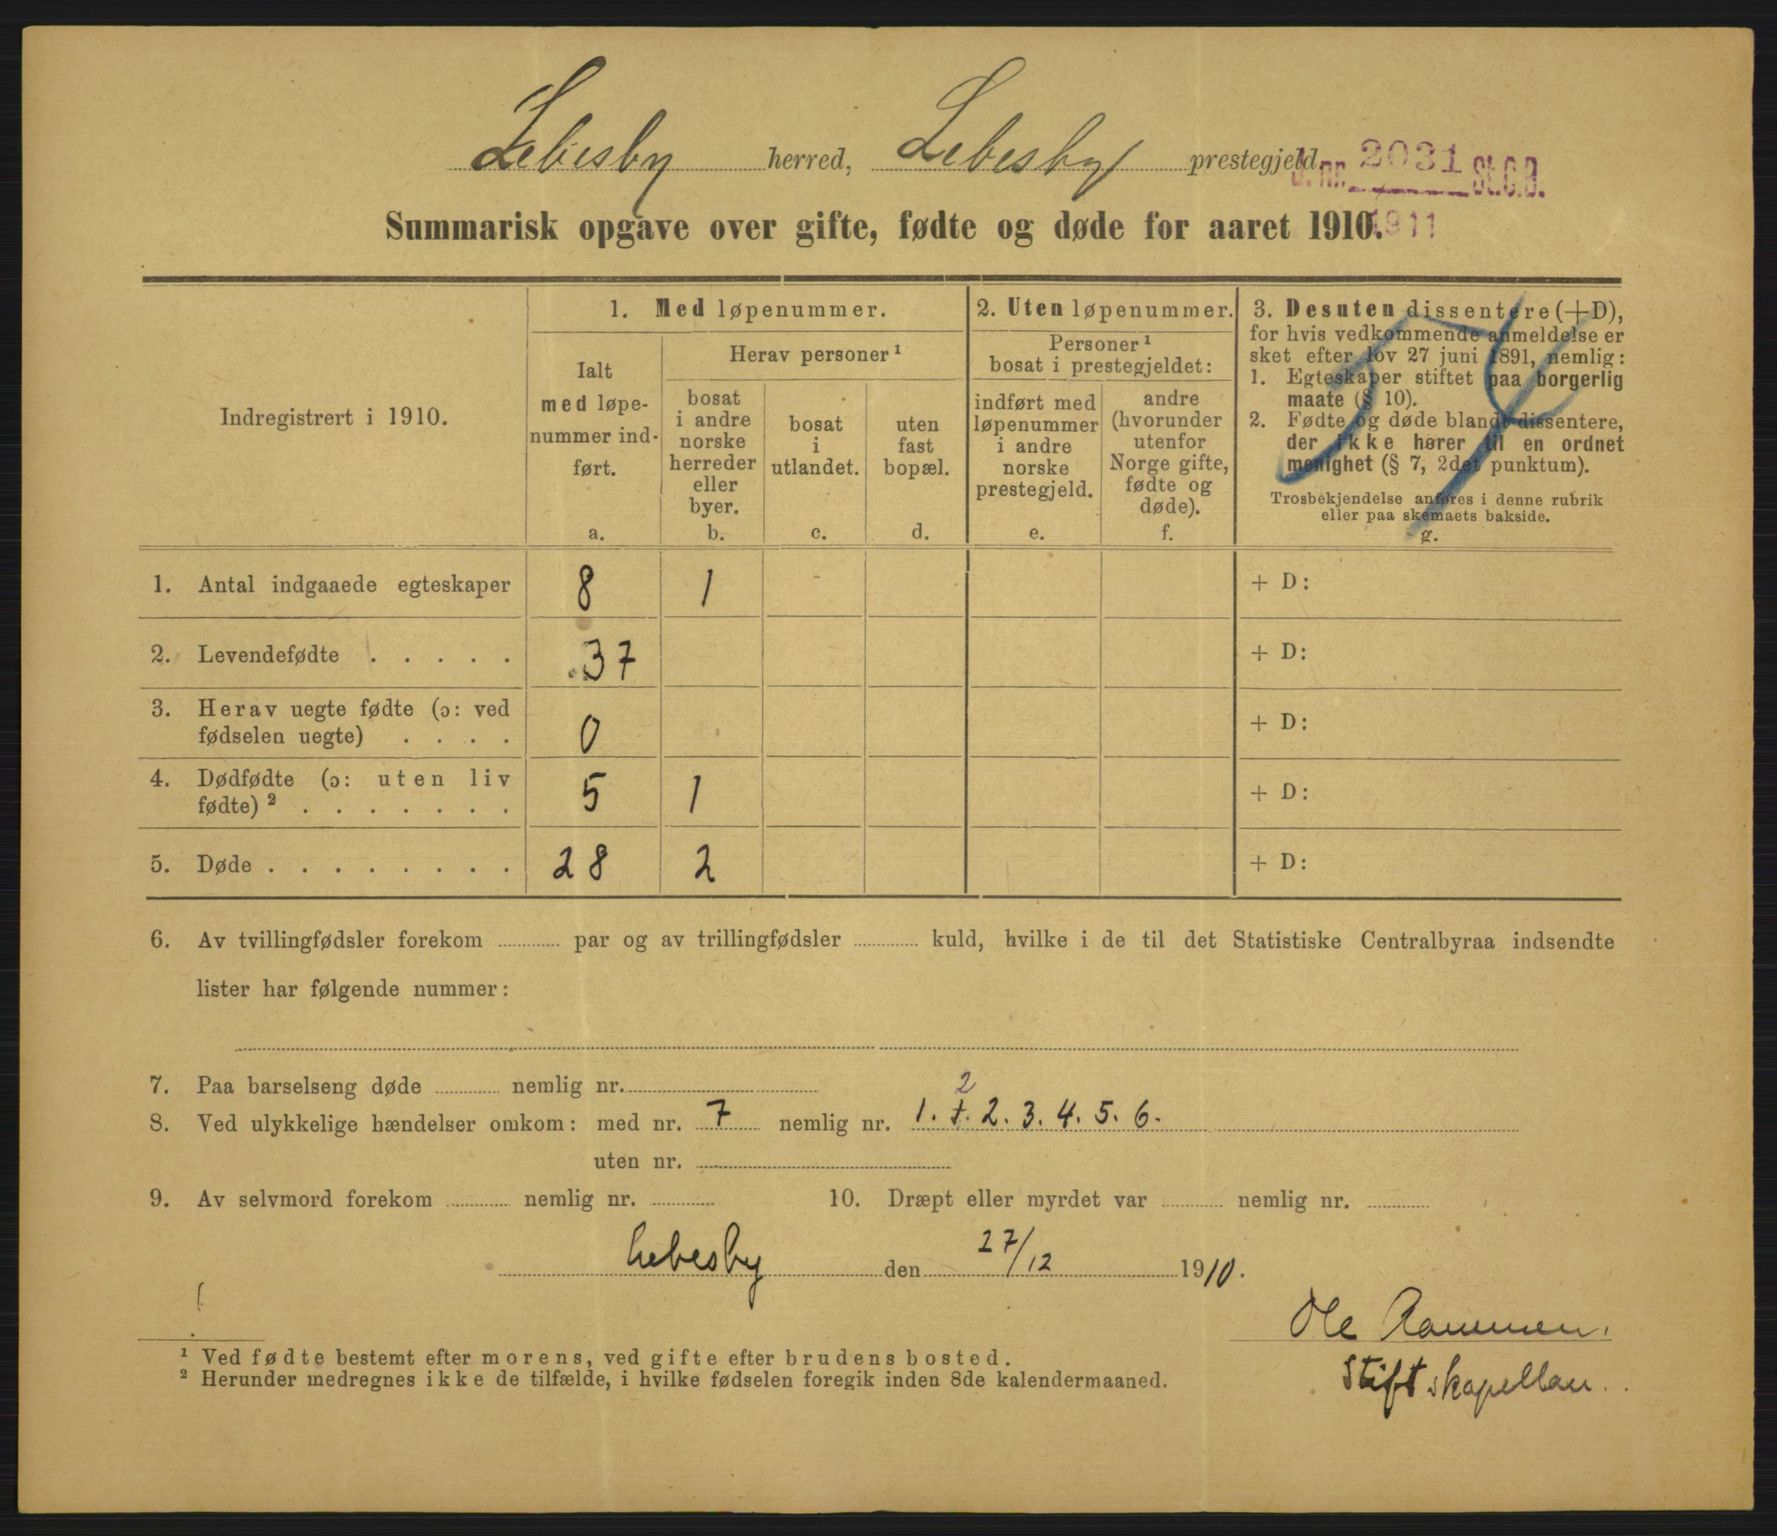 Lebesby herred, Lebesby prestegjeld
J. nr. 2031 St. C. B.
1911
Summarisk opgave over gifte, fødte og døde for aaret 1910.
Indregistrert i 1910.
1. Med løpenummer.
Ialt
med løpe-
nummer ind-
ført.
a.
Herav personer ¹
bosat
i andre
norske
herreder
eller
byer.
b.
bosat
i
utlandet.
c.
uten
fast
bopæl.
d.
2. Uten løpenummer.
Personer ¹
bosat i prestegjeldet:
indført med
løpenummer
i andre
norske
prestegjeld.
e.
andre
(hvorunder
utenfor
Norge gifte,
fødte og
døde).
f.
3. Desuten dissentere (+D),
for hvis vedkommende anmeldelse er
sket efter lov 27 juni 1891, nemlig:
1. Egteskaper stiftet paa borgerlig
maate (§ 10).
2. Fødte og døde blandt dissentere,
der ikke hører til en ordnet
menighet (§ 7, 2det punktum).
Trosbekjendelse anføres i denne rubrik
eller paa skemaets bakside.
g.
1. Antal indgaaede egteskaper 8 1 + D:
2. Levendefødte . . . . . 37 + D:
3. Herav uegte fødte (ɔ: ved
fødselen uegte) . . . . 0 + D:
4. Dødfødte (ɔ: uten liv
fødte) ² . . . . . . . 5 1 + D:
5. Døde . . . . . . . . 28 2 + D:
6. Av tvillingfødsler forekom ............ par og av trillingfødsler ............ kuld, hvilke i de til det Statistiske Centralbyraa indsendte
lister har følgende nummer:
7. Paa barselseng døde ............ nemlig nr. ............
2
8. Ved ulykkelige hændelser omkom: med nr. 7 nemlig nr. 1. 1. 2. 3. 4. 5. 6.
uten nr. ............
9. Av selvmord forekom ............ nemlig nr. ............ 10. Dræpt eller myrdet var ............ nemlig nr. ............
Lebesby den 27/12 1910.
Ole
Stiftskapellan.
¹ Ved fødte bestemt efter morens, ved gifte efter brudens bosted.
² Herunder medregnes ikke de tilfælde, i hvilke fødselen foregik inden 8de kalendermaaned.